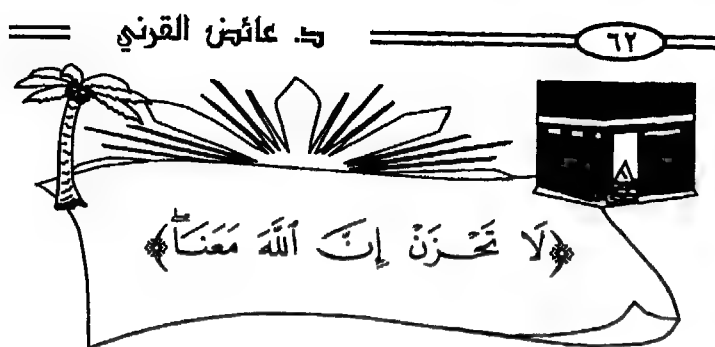 ٦٢ د. عائض القرني
﴿لَا تَحْزَنْ إِنَّ ٱللَّهَ مَعَنَاۖ﴾